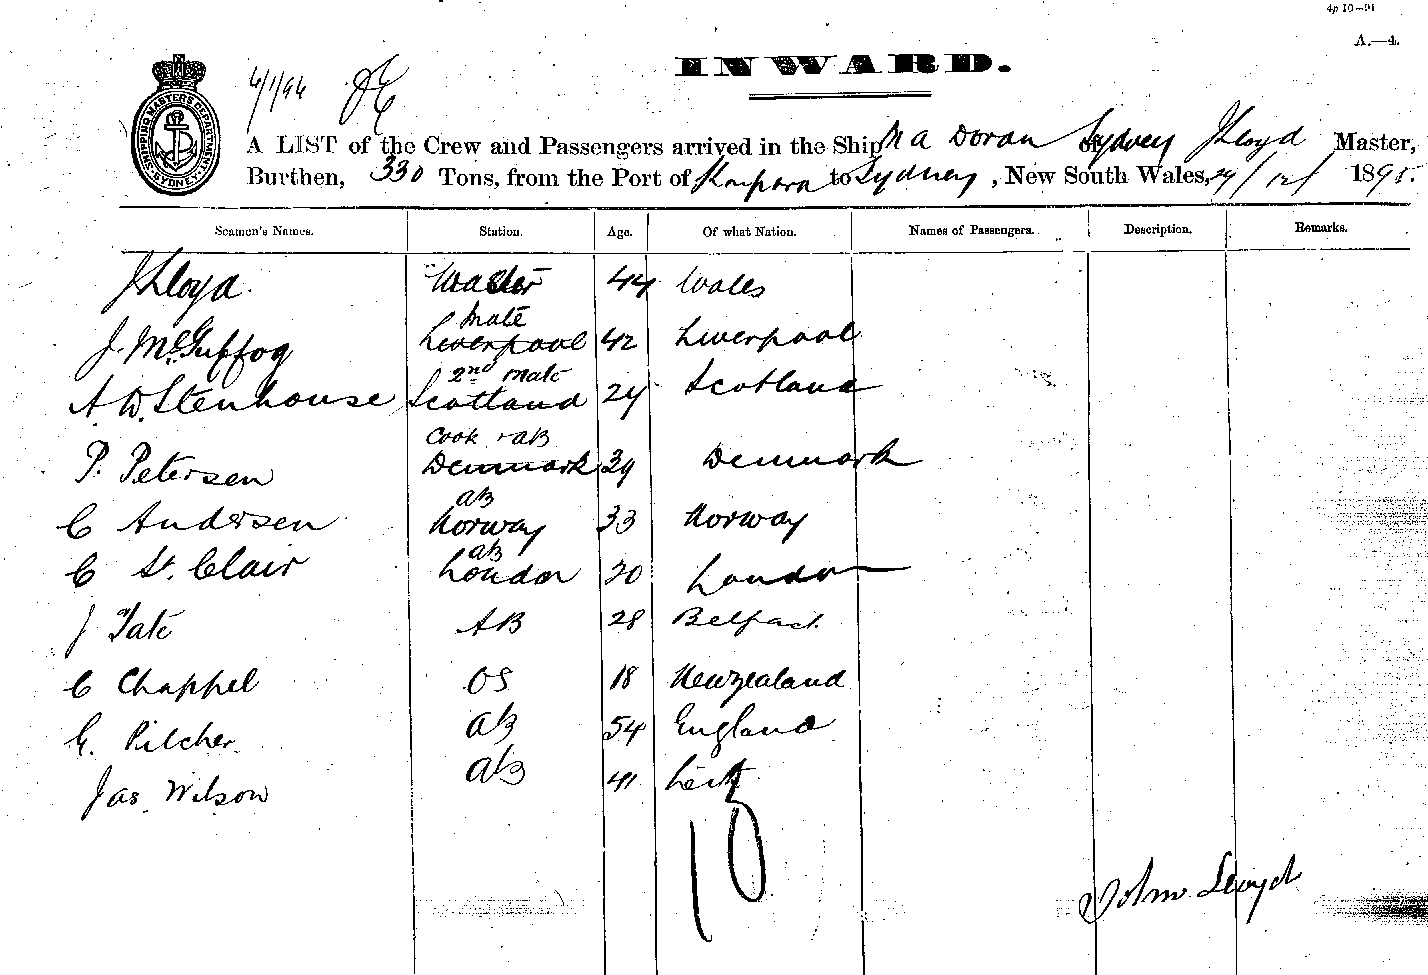 4p 10-91
A.—4.
INWARD.
6/1/96
SHIPPING MASTER'S DEPARTMENT SYDNEY
A LIST of the Crew and Passengers arrived in the Ship M A Doran of Sydney J Lloyd Master,
Burthen, 330 Tons, from the Port of Kaipara to Sydney, New South Wales, 29/12/ 1895.
Seamen's Names. Station. Age. Of what Nation. Names of Passengers. Description. Remarks.
J Lloyd. Master 44 Wales
Mate
J. McGuffog Liverpool 42 Liverpool
2nd Mate
A. W. Stenhouse Scotland 24 Scotland
Cook & AB
P. Petersen Denmark 39 Denmark
AB
C Andersen Norway 33 Norway
AB
C St. Clair London 20 London
J Tate AB 28 Belfast
C Chappel OS 18 Newzealand
G. Pilcher AB 54 England
Jas Wilson AB 41 Leith
10
John Lloyd